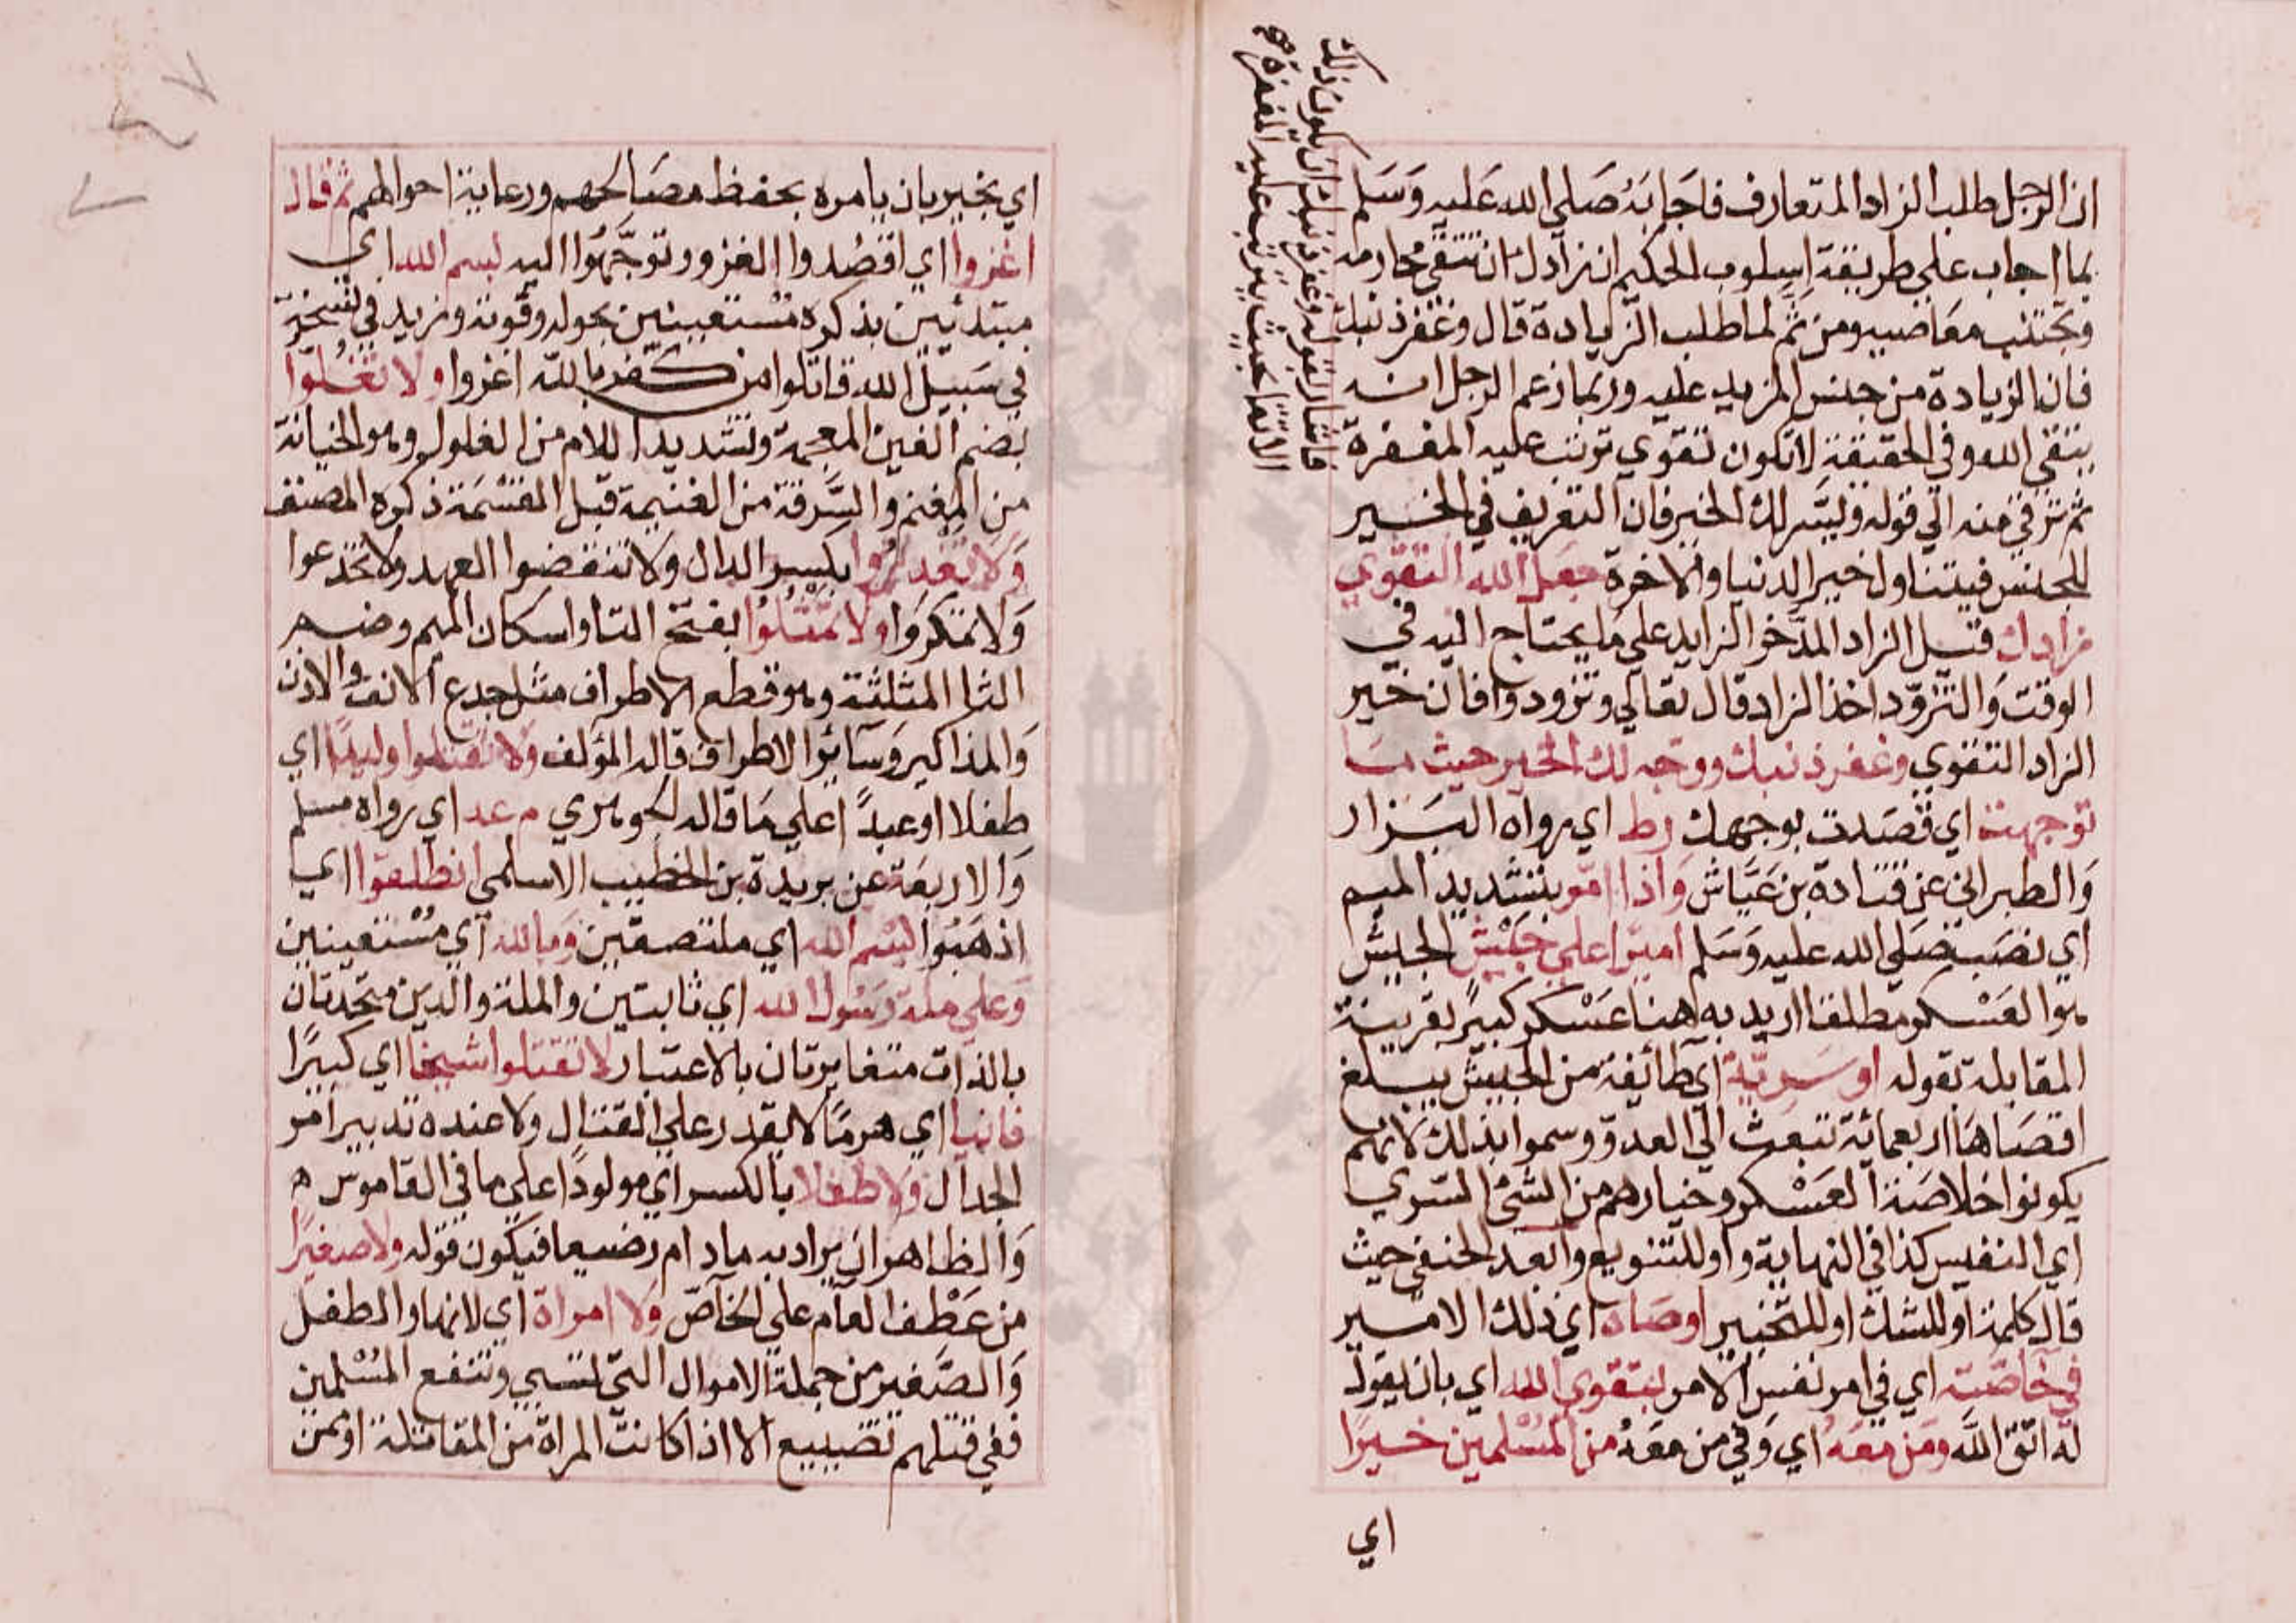 ان الرجل طلب الزاد المتعارف فاجابه صلي الله عليه وسلم
بما اجاب علي طريقة اسلوب الحكيم ان زادك ان تتقي محارمه
وتجتنب معاصيه ومن ثم لما طلب الزيادة قال وغفر ذنبك
فان الزيادة من جنس المزيد عليه وربما زعم الرجل انه
يتقي الله وفي الحقيقة لا تكون تقوي ترتب عليه المغفرة
فاشار بقوله وغفر ذنبك ان يكون ذلك
الاتقا بحيث يترتب عليه المغفرة
ثم ترقي منه الي قوله ويسر لك الخير فان التعريف في الخير
للجنس فيتناول خير الدنيا والاخرة جعل الله التقوي
زادك قيل الزاد المدخر الزايد علي ما يحتاج اليه في
الوقت والتزود اخذ الزاد قال تعالي وتزودوا فان خير
الزاد التقوي وغفر ذنبك ووجه لك الخير حيث ما
توجهت اي قصدت بوجهك رط اي رواه البزار
والطبراني عن قتادة بن عياش واذا امر بتشديد الميم
اي نصب صلي الله عليه وسلم اميرا علي جيش الجيش
هو العسكر مطلقا اريد به هنا عسكر كبير بقرينة
المقابلة بقوله او سرية اي طائفة من الجيش يبلغ
اقصاها اربعمائة تبعث الي العدو وسموا بذلك لانهم
يكونوا خلاصة العسكر وخيارهم من الشئ السري
اي النفيس كذا في النهاية واو للتنويع وابعد الحنفي حيث
قال كلمة او للشك او للتخيير اوصاه اي ذلك الامير
في خاصته اي في امر نفس الامر بتقوي الله اي بان يقول
له اتق الله ومن معه اي وفي من معه من المسلمين خيرا
اي
اي بخير بان يامره بحفظ مصالحهم ورعاية احوالهم ثم قال
اغزوا اي اقصدوا الغزو وتوجهوا اليه بسم الله اي
مبتدئين بذكره مستعينين بحوله وقوته وزيد في نسخة
في سبيل الله قاتلوا من كفر بالله اغزوا ولا تغلوا
بضم الغين المعجمة وتشديد اللام من الغلول وهو الخيانة
من المغنم والسرقة من الغنيمة قبل القسمة ذكره المصنف
ولا تغدروا بكسر الدال ولا تنقضوا العهد ولا تخدعوا
ولا تمكروا ولا تمثلوا بفتح التا واسكان الميم وضم
الثا المثلثة وهو قطع الاطراف مثل جدع الانف والاذن
والمذاكير وسائر الاطراف قاله المؤلف ولا تقتلوا وليدا اي
طفلا او عبدا علي ما قاله الجوهري م عد اي رواه مسلم
والاربعة عن بريدة بن الخطيب الاسلمي انطلقوا اي
اذهبوا بسم الله اي ملتصقين وبالله اي مستعينين
وعلي ملة رسول الله اي ثابتين والملة والدين متحدتان
بالذات متغايرتان بالاعتبار لا تقتلوا شيخا اي كبيرا
فانيا اي هرما لا يقدر علي القتال ولا عنده تدبير امر
الجدال ولا طفلا بالكسر اي مولودا علي ما في القاموس
والظاهر ان يراد به مادام رضيعا فيكون قوله ولا صغيرا
من عطف العام علي الخاص ولا امراة اي لانها والطفل
والصغير من جملة الاموال التي تسبي وتنفع المسلمين
ففي قتلهم تضييع الا اذا كانت المراة من المقاتلة او ممن